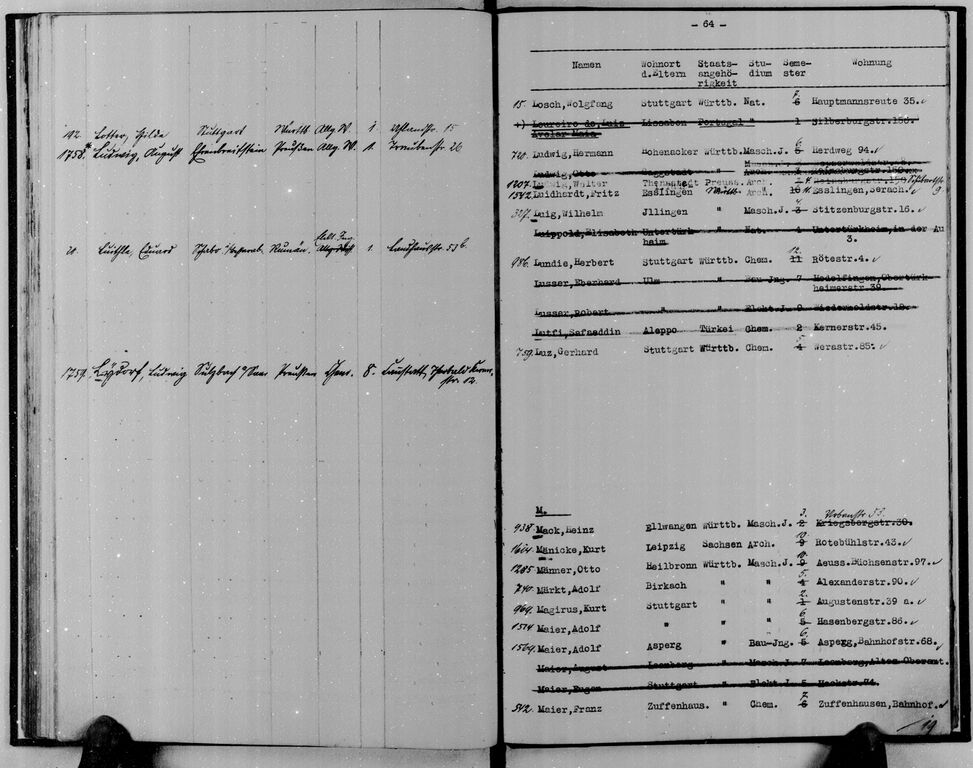 192. Lotter, Hilda Stuttgart Württ. Allg. W. 1. Uhlandstr. 15
1758. Ludwig, August Ehrenbreitstein Preußen Allg. W. 1. 26
Eduard Rumän. 1. Landhausstr. 53b
1759. Ludwig Sulzbach a/Saar Preußen Chem. 8.
- 64 -
Namen Wohnort d.Eltern Staats-angehö-rigkeit Stu-dium Seme-ster Wohnung
7.
15. Losch, Wolfgang Stuttgart Württb. Nat. 6 Hauptmannsreute 35.
+) Loureiro de, Luiz Lissabon Portugal " 1 Silberburgstr.156.
Avelar Maia
6
720. Ludwig, Hermann Hohenacker Württb. Masch.J. 5 Herdweg 94.
Ludwig, Otto Gaggstadt " Arch.
1207. Ludwig, Walter Thamstedt Preuss. Arch.
1542. Luidhardt, Fritz Esslingen Württ. Arch. 10 11. Esslingen, Serach.
4.
327. Luig, Wilhelm Jllingen " Masch.J. 3 Stitzenburgstr.16.
Luippold, Elisabeth Untertürk- " Nat. 4 Untertürkheim, in der Au
heim. 3.
12.
986. Lundie, Herbert Stuttgart Württb. Chem. 11 Rötestr.4.
Lusser, Eberhard Ulm " Bau-Jng. 7 Hedelfingen, Obertürk
heimerstr.39.
Lusser, Robert " " Elekt.J. 9
Lutfi, Safaeddin Aleppo Türkei Chem. 2 Kernerstr.45.
5
759. Luz, Gerhard Stuttgart Württb. Chem. 4 Werastr.85.
M.
3. Urbanstr. 53.
938. Mack, Heinz Ellwangen Württb. Masch.J. 2 Kriegsbergstr.30.
10.
1604. Mänicke, Kurt Leipzig Sachsen Arch. 9 Rotebühlstr.43.
10.
1285. Männer, Otto Heilbronn Württb. Masch.J. 9 Aeuss.Büchsenstr.97.
5.
740. Märkt, Adolf Birkach " " 4 Alexanderstr.90.
2.
969. Magirus, Kurt Stuttgart " " 1 Augustenstr.39 a.
6
1514. Maier, Adolf " " " 5 Hasenbergstr.86.
6.
1569. Maier, Adolf Asperg " Bau-Jng. 5 Asperg, Bahnhofstr.68.
Maier, August Leonberg " Masch.J. 7 Leonberg, Altes Oberamt.
Maier, Eugen Stuttgart " Elekt.J. 5 Hackstr.74.
7.
542. Maier, Franz Zuffenhaus. " Chem. 6 Zuffenhausen, Bahnhof.
19